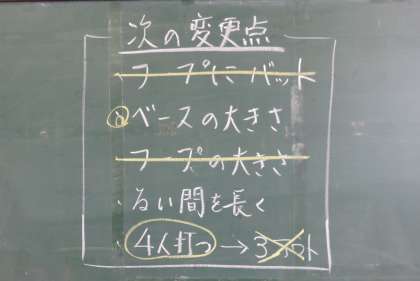 次の変更点
・フープにバット
②ベースの大きさ
・フープの大きさ
・るい間を長く
・4人打つ→3アウト